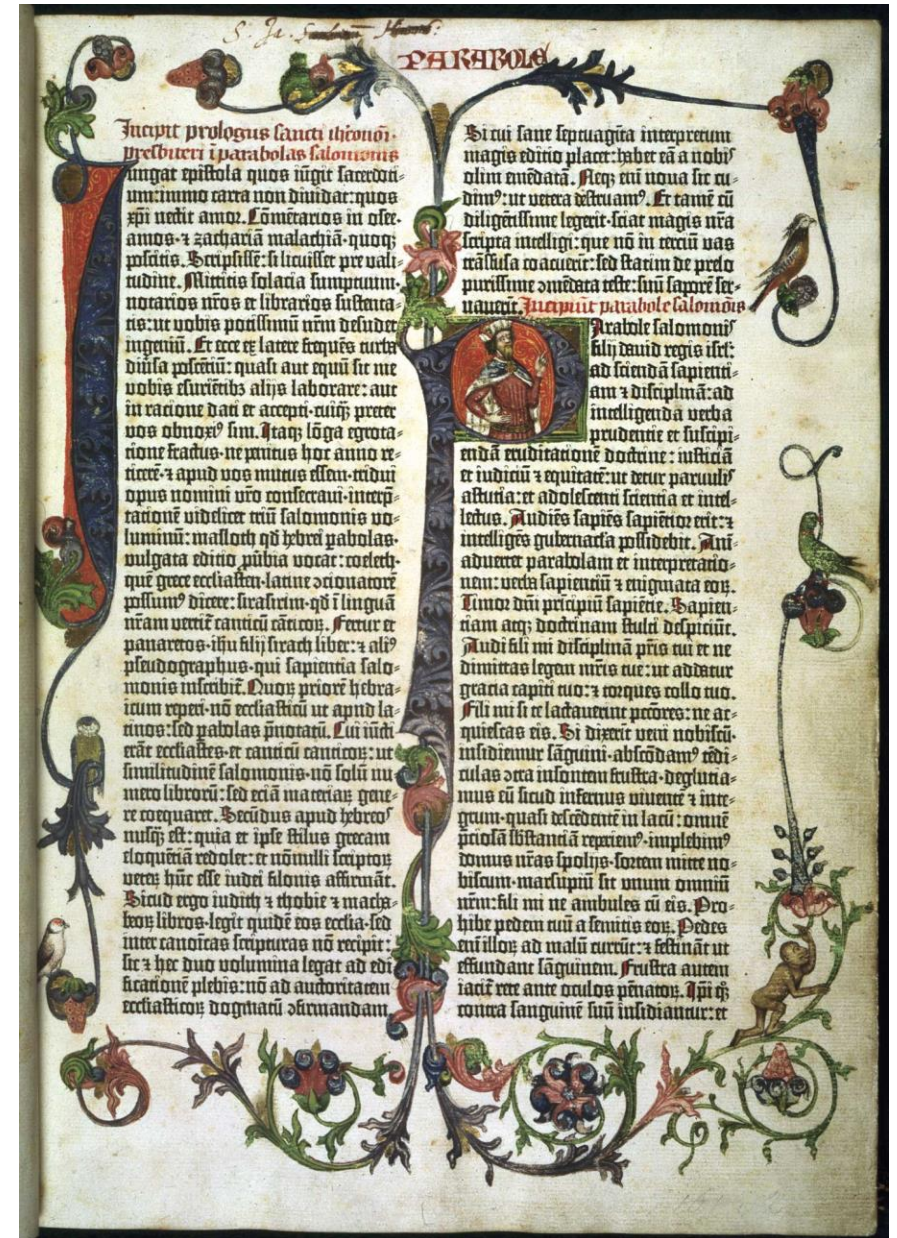 PARABOLE
Incipit prologus sancti iheronimi
presbiteri ī parabolas salomonis
Iungat epistola quos iūgit sacerdoti-
um: immo carta non diuidat: quos
xpi nectit amor. Cōmētarios in osee.
amos. ⁊ zachariā malachiā. quoq;
poscitis. Scripsissē: si licuisset pre vali-
tudine. Mittitis solacia sumptuum.
notarios nr̄os et librarios sustenta-
tis: ut vobis potissimū nr̄m desudet
ingeniū. Et ecce ex latere frequēs turba
diūsa poscētiū: quasi aut equū sit me
vobis esuriētibꝫ alijs laborare: aut
in racione dati et accepti. cuiq̄ꝫ preter
vos obnoxiꝰ sim. Itaqꝫ lōga egrota-
tione fractus. ne penitus hoc anno re-
ticerē. ⁊ apud vos mutus essem. tridui
opus nomini vr̄o consecraui. interp̄-
tationē videlicet triū salomonis vo-
luminū: masloth qd̄ hebrei pabolas.
vulgata editio p̄ubia vocat: coeleth.
quē grece ecclīasten. latine ↄcionatorē
possumꝰ dicere: sirasirim. qd̄ ī linguā
nr̄am vertit̄ canticū cāticoꝝ. Fertur et
panaretos. ihu filij sirach liber: ⁊ aliꝰ
pseudographus. qui sapientia salo-
monis inscribit̄. Quoꝝ priorē hebra-
icum reperi. nō ecclīasticū ut apud la-
tinos: sed pabolas p̄notatū. Cui iūcti
erāt ecclīastes. et canticū canticoꝝ: ut
similitudinē salomonis. nō solū nu-
mero librorū: sed eciā materiaꝝ gene-
re coequaret. Secūdus apud hebreoˢ
nusq̄ꝫ est: quia et ipse stilus grecam
eloquētiā redolet: et nōnulli scriptoꝝ
veteꝝ hūc esse iudei filonis affirmāt.
Sicud ergo iudith ⁊ thobie ⁊ macha-
beoꝝ libros. legit quidē eos ecclīa. sed
inter canoīcas scripturas nō recipit:
sic ⁊ hec duo volumina legat ad edi-
ficationē plebis: nō ad auctoritatem
ecclīasticoꝝ dogmatū ↄfirmandam.
Si cui sane septuagīta interpretum
magis editio placet: habet eā a nobiˢ
olim emēdatā. Neqꝫ em̄ noua sic cu-
dimꝰ: ut vetera destruamꝰ. Et tamē cū
diligētissime legerit. sciat magis nr̄a
scripta intelligi: que nō in terciū vas
trāsfusa coacuerīt: sed statim de prelo
purissime ↄmēdata teste: suū saporē ser-
uauerīt. Incipiūt parabole salomōis
Parabole salomoniˢ
filij dauid regis isrl̄:
ad sciendā sapienti-
am ⁊ disciplinā: ad
intelligenda verba
prudentie et suscipi-
endā eruditationē doctrine: iusticiā
et iudiciū ⁊ equitatē: ut detur paruuliˢ
astutia: et adolescenti scientia et intel-
lectus. Audiēs sapiēs sapiētior erit: ⁊
intelligēs gubernacla possidebit. Ani-
aduertet parabolam et interpretatio-
nem: verba sapientiū ⁊ enigmata eoꝝ.
Timor dn̄i prīcipiū sapiētie. Sapien-
tiam atqꝫ doctrinam stulti despiciūt.
Audi fili mi disciplinā pr̄is tui et ne
dimittas legem mr̄is tue: ut addatur
gracia capiti tuo: ⁊ torques collo tuo.
Fili mi si te lactauerint pctōres: ne ac-
quiescas eis. Si dixerit veni nobiscū.
insidiemur sāguini. abscōdamꝰ tēdi-
culas ↄtra insontem frustra. deglutia-
mus eū sicud infernus viuentē ⁊ inte-
grum. quasi descēdentē in lacū: omnē
p̄ciosā sb̄stantiā repriemꝰ. implebimꝰ
domus nr̄as spolijs. sortem mitte no-
biscum. marsupiū sit vnum omniū
nr̄m: fili mi ne ambules cū eis. Pro-
hibe pedem tuū a semitis eoꝝ. Pedes
em̄ illoꝝ ad malū currūt: ⁊ festināt ut
effundant sāguinem. Frustra autem
iacit̄ rete ante oculos pēnatoꝝ. Ipi qꝫ
contra sanguinē suū insidiantur: et